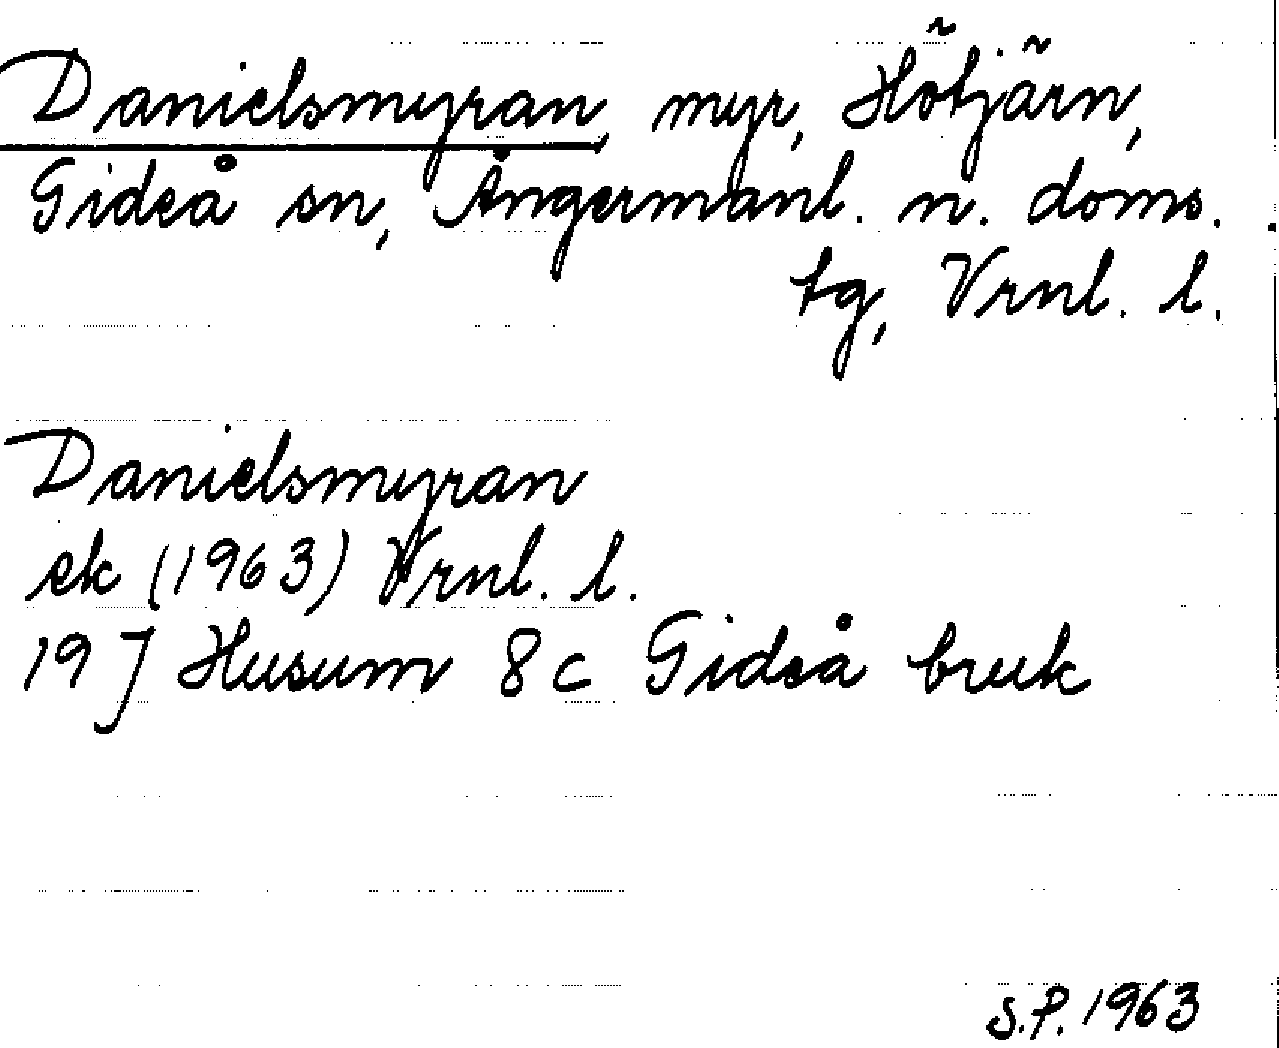 Danielsmyran, myr, Hötjärn,
Gideå sn, Ångermanl. n. doms.
tg, Vrnl. l.
Danielsmyran
ek (1963) Vrnl. l.
19 J Husum 8 c Gideå bruk
S.P. 1963